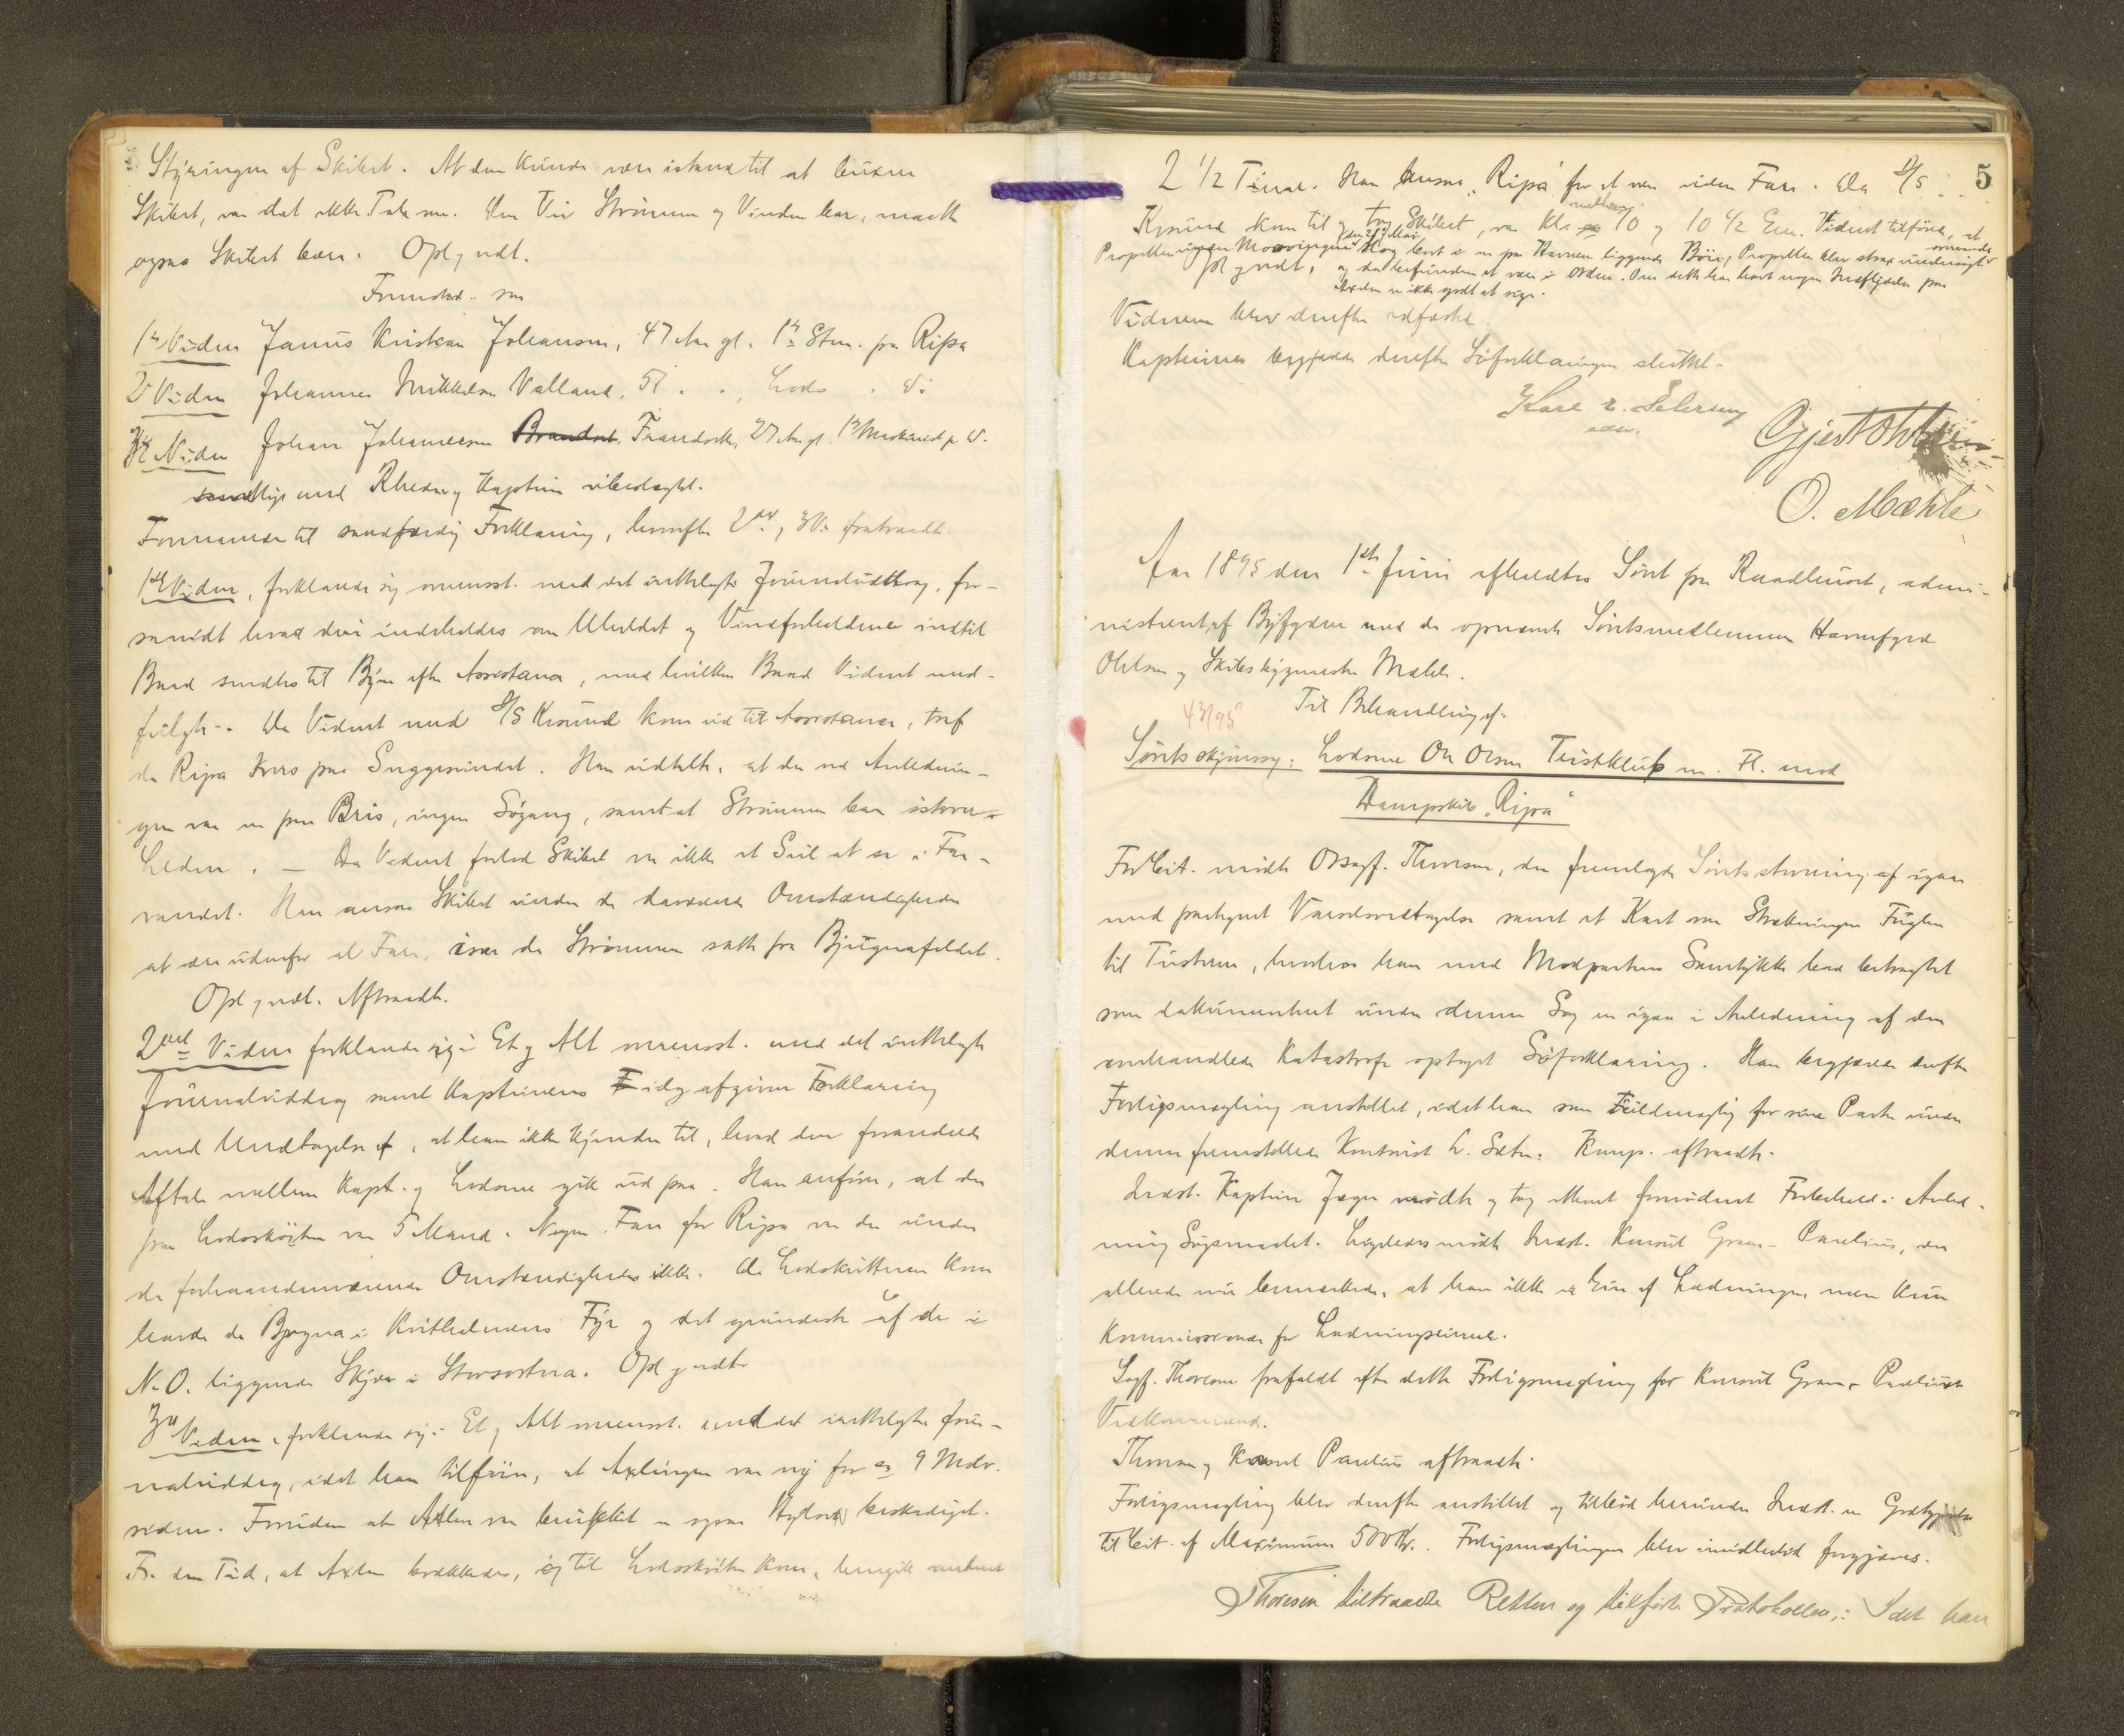 Styringen af Skibet. At den kunde være istand til at buxere
Skibet, var det ikke Tale om. Den Vei Strømmen og Vinden bar, maatte
ogsaa Skibet bære. Opl. vedt.
Fremstod som
1ste Vidne Janus Kristian Johansen, 47 Aar gl. 1ste Strm. paa Ripa
2 Vidne Johannes Mikkelsen Valland, 51 " " , Lods " Do
3die Vidne Johan Johannesen Brandset, Frandsch, 27 Aar gl. 1ste Maskinist p. Do.
samtlige med Rheder og Kaptein ubeslægtet.
Formanede til sandfærdig Forklaring, hvorefter 2det og 3die fratraadte.
1ste Vidne, forklarede sig overensst. med det indleverede Journaludtog, for-
saavidt hvad deri indeholdes om Uheldet og Vindforholdene indtil
Baad sendtes til Byen efter Assistance, med hvilken Baad Vidnet med-
fulgte. Da Vidnet med D/S Kvsund kom ud til Assistance, traf
de Ripa tvers paa Suggesundet. Han udtalte, at der ved Anlednin-
gen var en pen Bris, ingen Søgang, samt at Strømmen bar istover
Leden. — Da Vidnet forlod Skibet var ikke et Seil at se i Far-
vandet. Han ansaa Skibet under de daværende Omstændigheder
at være udenfor al Fare, især da Strømmen satte fra Bjugnafeldet.
Opl. vedt. Aftraadte.
2det Vidne forklarede sig i Et og Alt overensst. med det indleverede
Journaluddrag samt Kapteinens idag afgivne Forklaring
med Undtagelse af, at han ikke kjender til, hvad den forandrede
Aftale mellem Kapt. og Lodserne gik ud paa. Han anfører, at der
paa Lodsskøiten var 5 Mand. Nogen Fare for Ripa var der under
de forhaandenværende Omstændigheder ikke. Da Lodskutteren kom
havde de Bjugna i Kvitholmens Fyr og det grundeste af de i
N.O. liggende Skjær i Storsortna. Opl. vedt.
3die Vidne forklarede sig i Et og Alt overensst. med det indleverede Jour-
naluddrag, idet han tilføier, at Axlingen var ny for ca 9 Mdr.
siden. Foruden at Axlen var brukket er ogsaa Hylset beskadiget.
Fr. den Tid, at Axlen brækkedes, og til Lodsskøiten kom, hengik omtrent
5
2 1/2 Time. Han ansaa "Ripa" for at være uden Fare. Da D/S
Kvsund kom til og tog Skibet, var Kl. mellem 10 og 10 1/2 Em. Vidnet tilfører, at
Propellen under Manøvringen slog bort i en paa Havnen liggende Bøie, Propellen blev strax undersøgt
og da befunden at være i Orden. Om dette har havt nogen Indflydelse paa
Axlen er ikke godt at sige.
Vidnerne blev derefter edfæstet.
Kapteinen begjærede derefter Søforklaringen sluttet.
Gjert Ohlsen
O. Mæhle
Aar 1895 den 1ste Juni afholdtes Søret paa Raadhuset, admi-
nistreret af Byfogden med de opnævnte Søretsmedlemmer Havnefoged
Ohlsen og Skibsbygmester Mæhle.
43/95 Til Behandling af:
Søretsskjønssag: Lodserne Ole Olsen Tustklup m. Fl. mod
Dampskib "Ripa"
For Cit. mødte Ovsagf. Thoresen, der fremlagde Søretsstevning af igaar
med paategnet Varselsvedtagelse samt et Kart over Strækningen Fuglen
til Tusteren, hvorhos han med Modpartens Samtykke bad betragtet
som dokumenteret under denne Sag en igaar i Anledning af den
omhandlede Katastrofe optaget Søforklaring. Han begjærede derefter
Forligsmægling anstillet, idet han som Fuldmægtig for sine Parter under
denne fremstillede Kontorist L. Sæter. Komp. aftraadte.
Indst. Kaptein Jæger mødte og tog ethvert fornødent Forbehold i Anled-
ning Søgsmaalet. Ligeledes mødte Indst. Konsul Gram-Parelius, der
allerede nu bemærkede, at han ikke er Eier af Ladningen men kun
Kommissionær for Ladningseierne.
Sagf. Thoresen frafaldt efter dette Forligsmægling for Konsul Gram-Parelius's
Vedkommende.
Thoresen og Konsul Parelius aftraadte.
Forligsmægling blev derefter anstillet og tilbød herunder Indst. en Godtgjørelse
til Cit. af Maximum 500 Kr. Forligsmæglingen blev imidlertid forgjæves.
Thoresen tiltraadte Retten og tilførte Protokollen: Idet han